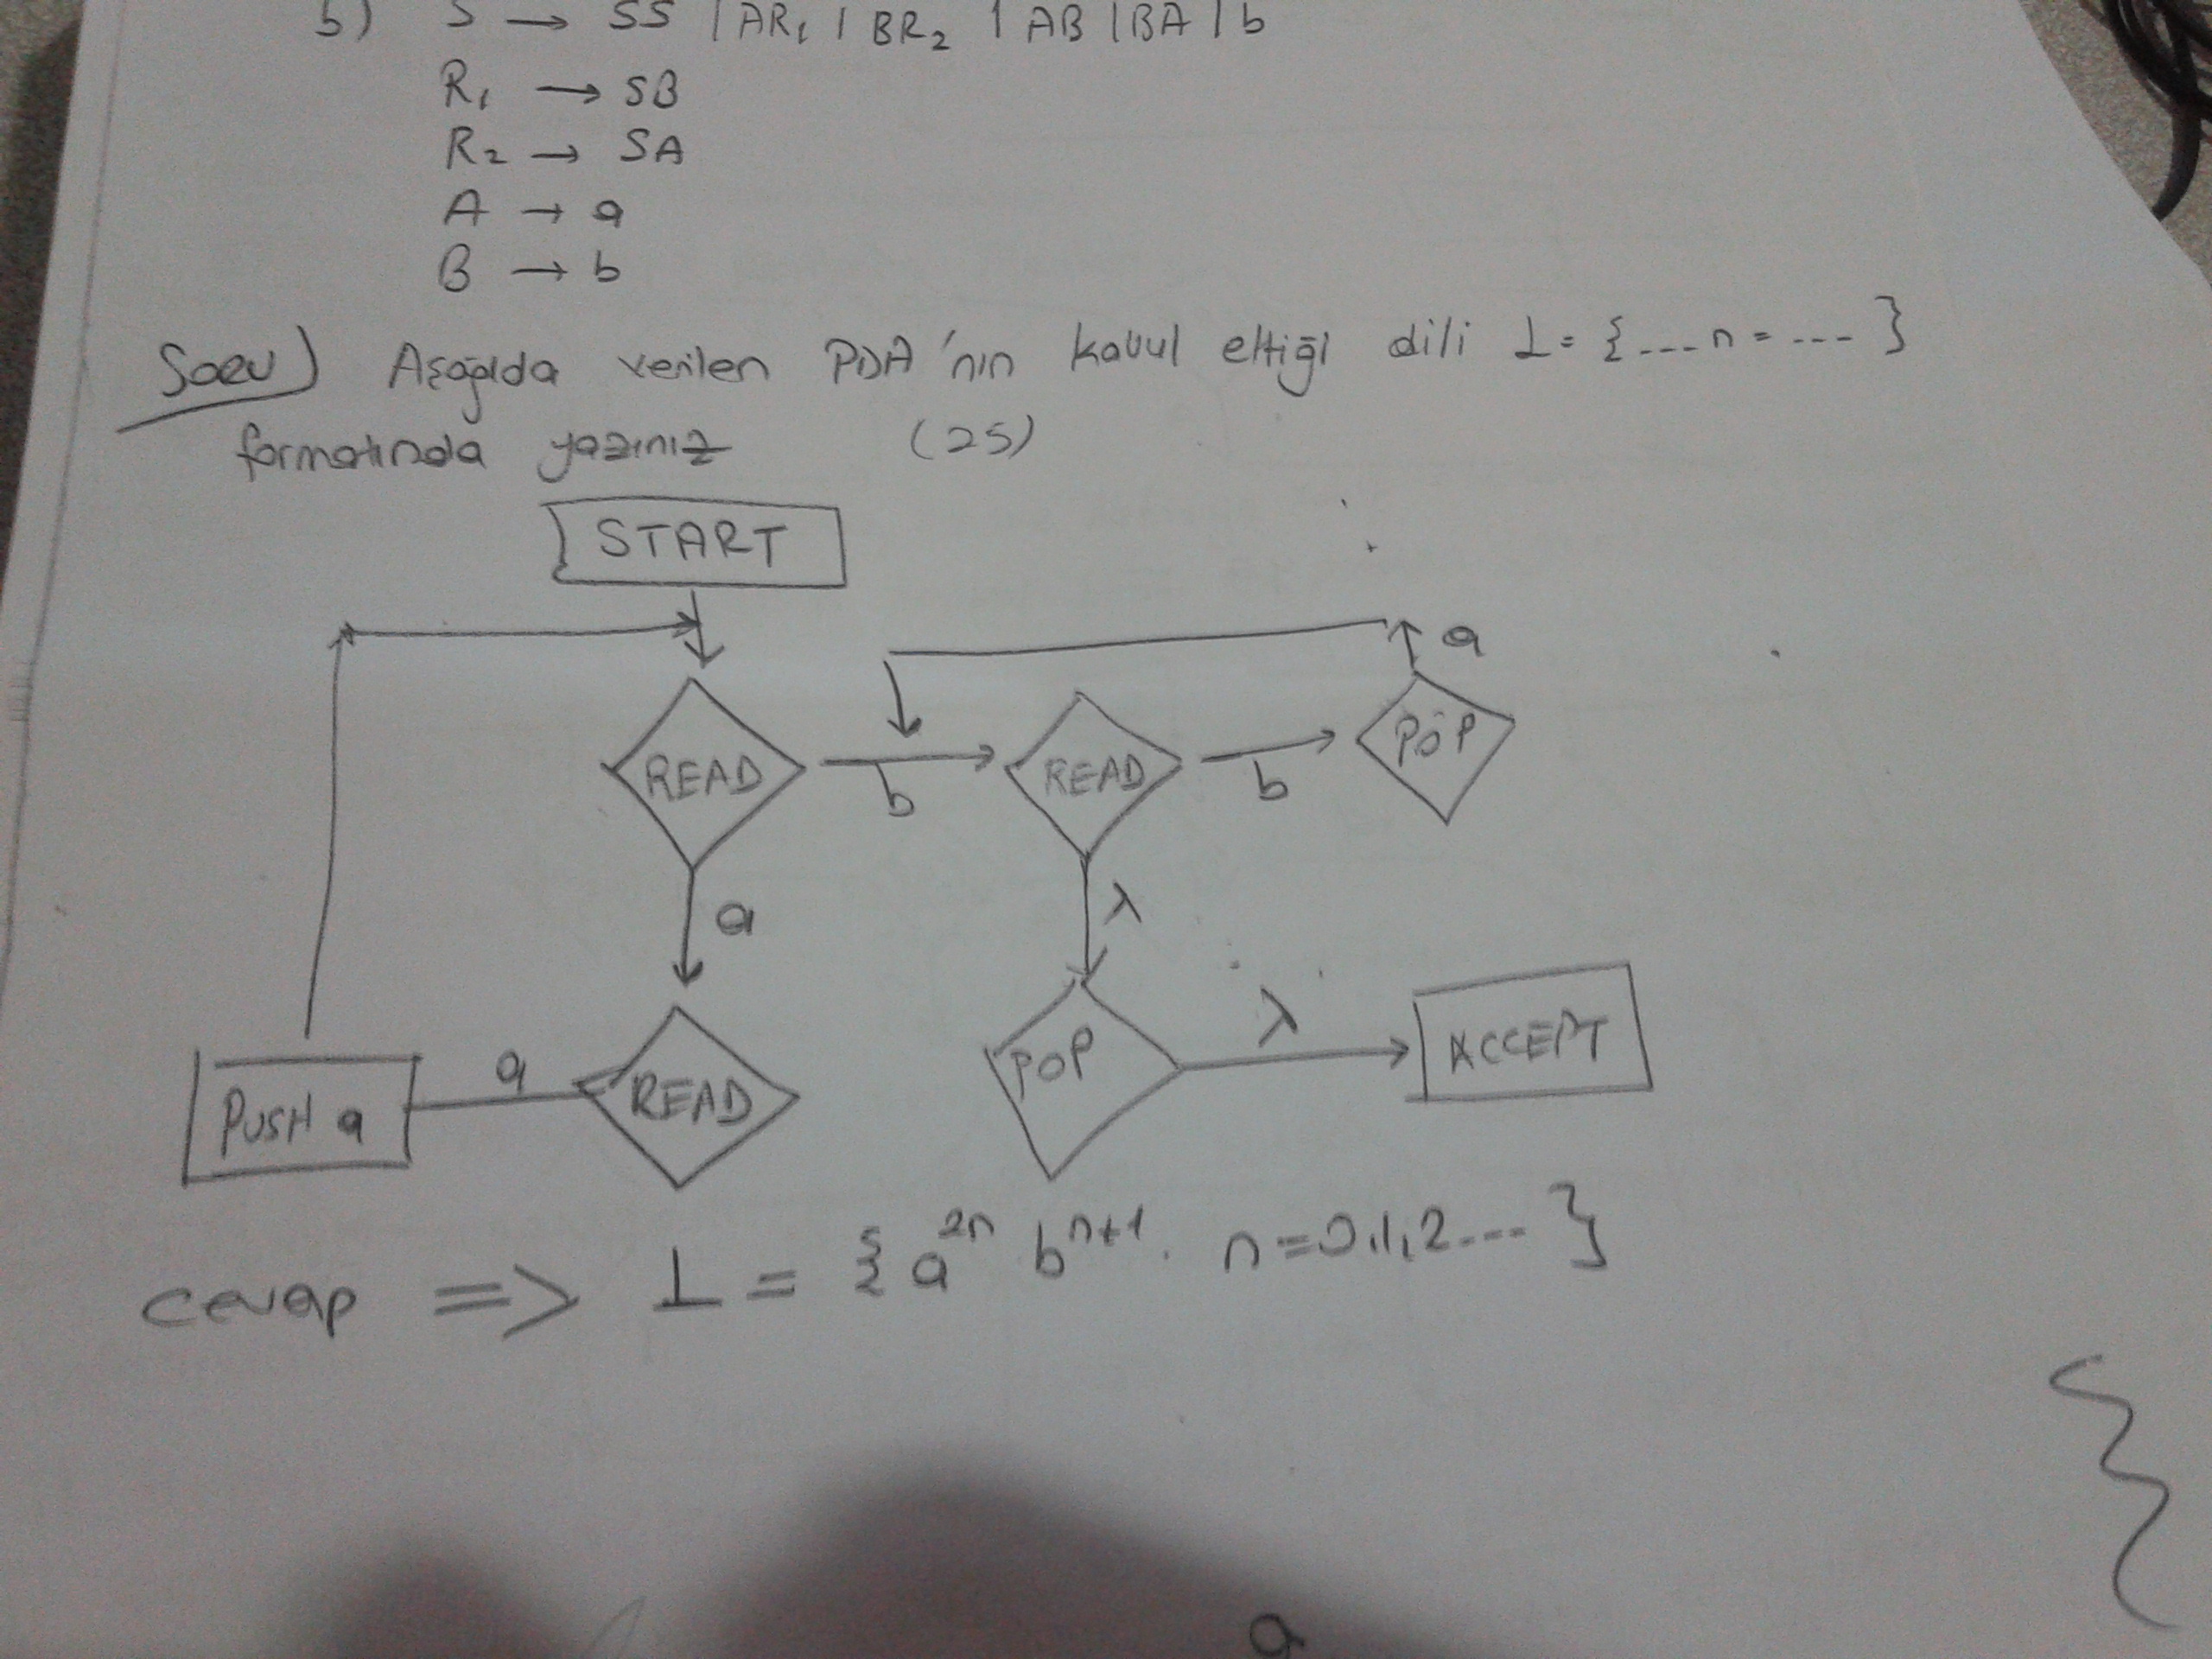 b) S → SS | AR₁ | BR₂ | AB | BA | b
R₁ → SB
R₂ → SA
A → a
B → b
Soru) Aşağıda verilen PDA'nın kabul ettiği dili L = {--- n = --- }
formatında yazınız (25)
START
a
READ b READ b POP
a λ
PUSH a a READ POP λ ACCEPT
cevap => L = { a²ⁿ bⁿ⁺¹. n=0,1,2--- }
a